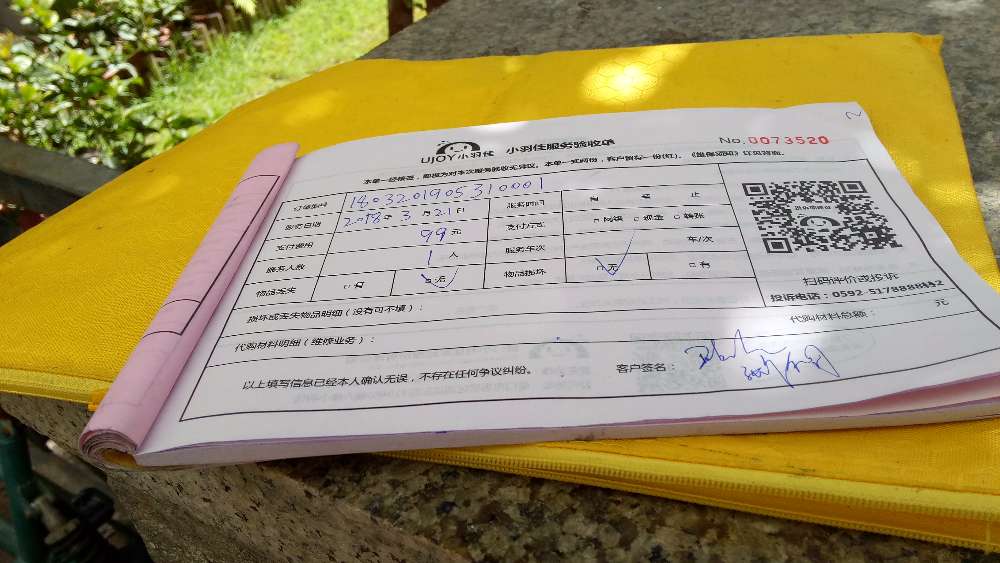 UJOY小羽佳 小羽佳服务验收单 No.0073520
本单一经签署，即视为对本次服务验收无异议。本单一式两份，客户留存一份(红)。《维保须知》详见背面。
订单编码 1803201905310001 服务时间 起 至 止
服务日期 2018年3月21日 支付方式 □网银 □现金 □转账
支付费用 99元 服务车次 车/次
服务人数 1人 物品损坏 □无 □有
物品丢失 □有 □无
扫码评价或投诉
投诉电话：0592-5178888转2
损坏或丢失物品明细（没有可不填）：
代购材料明细（维修业务）： 代购材料总额： 元
以上填写信息已经本人确认无误，不存在任何争议纠纷。 客户签名：